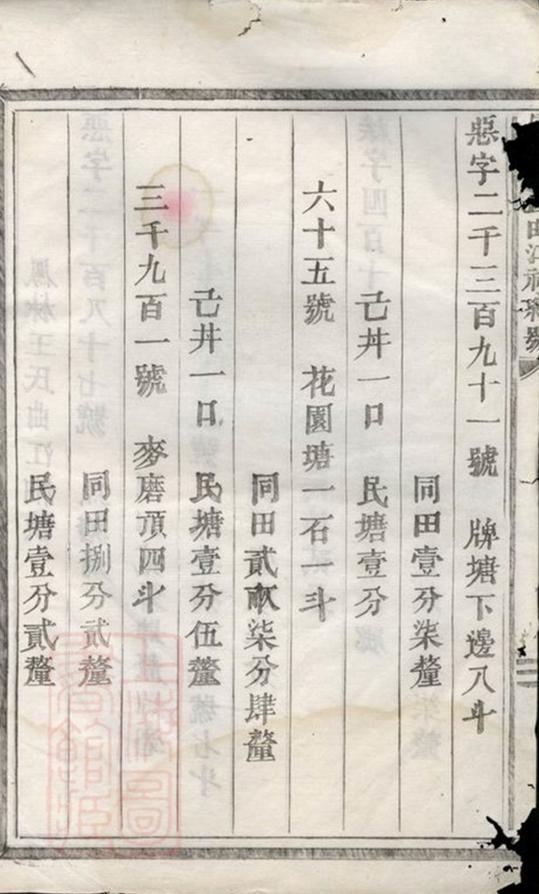 惡字二千三百九十一號　牌塘下邊八斗
同田壹分柒釐
己井一口　民塘壹分
六十五號　花園塘一石一斗
同田貳畝柒分肆釐
己井一口　民塘壹分伍釐
三千九百一號　麥磨頂四斗
同田捌分貳釐
民塘壹分貳釐